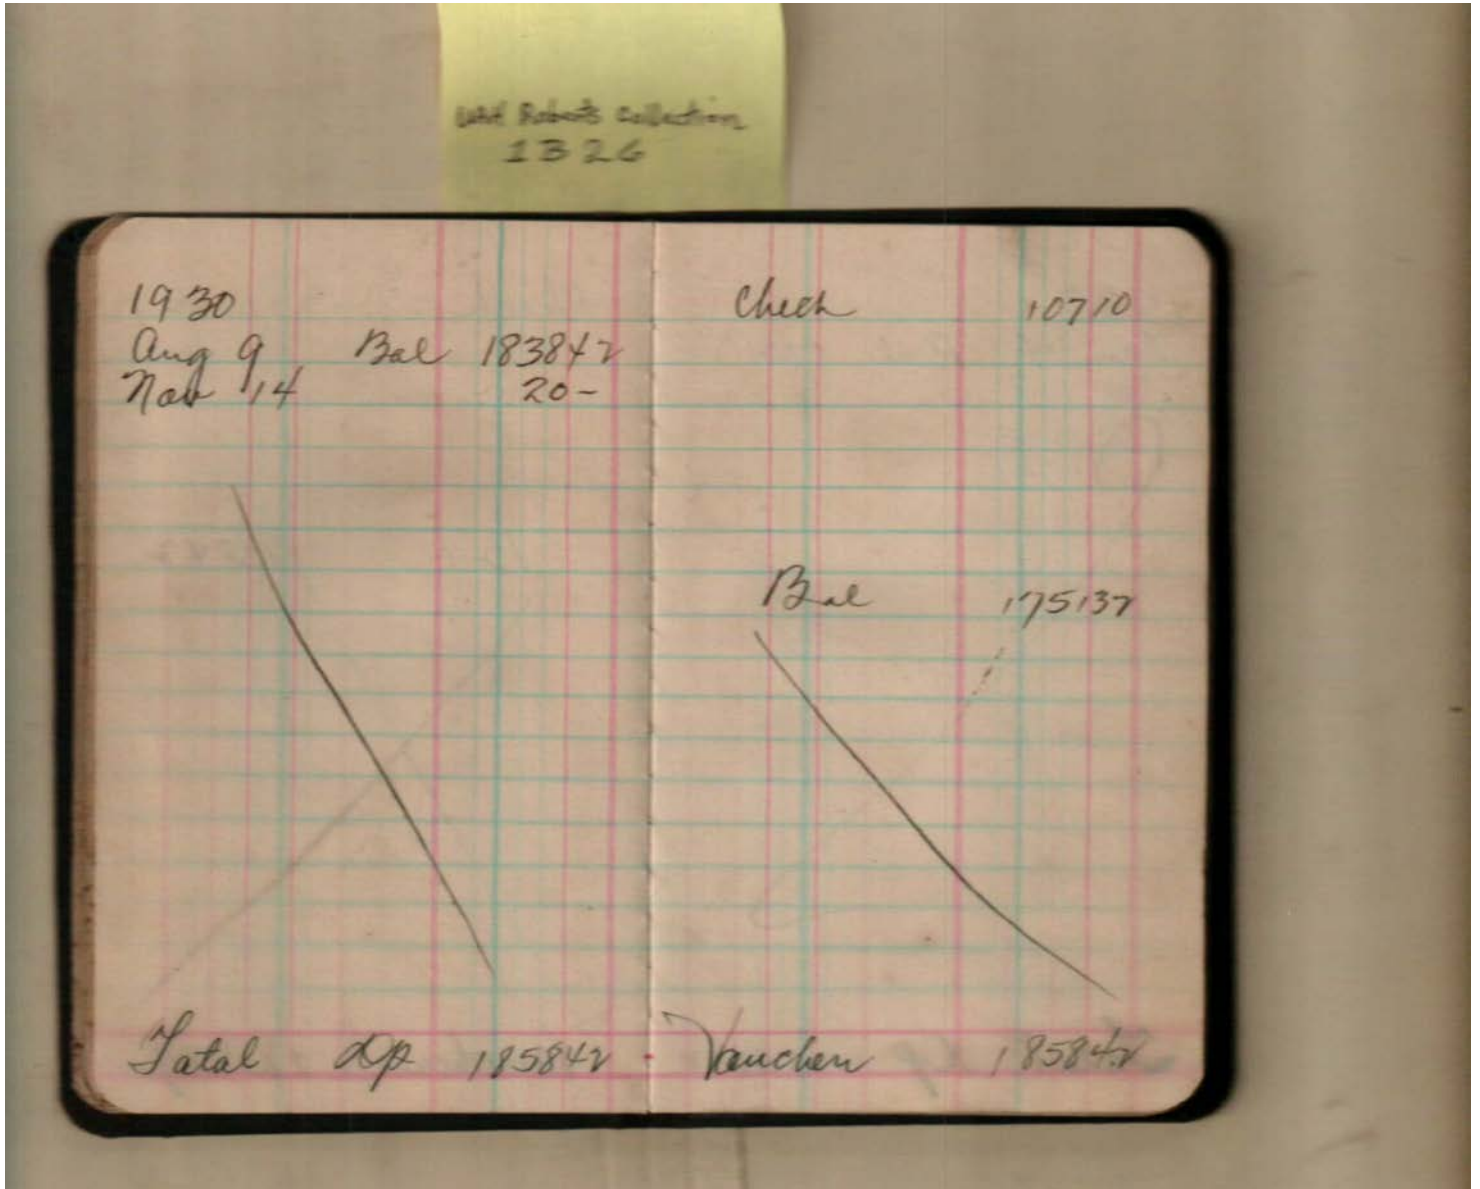 UAH Roberts Collection
1B2G
1930
Aug 9 Bal 183842
Nov 14 20-
Total Dp 185842
Check 10710
Bal 175132
Voucher 185842